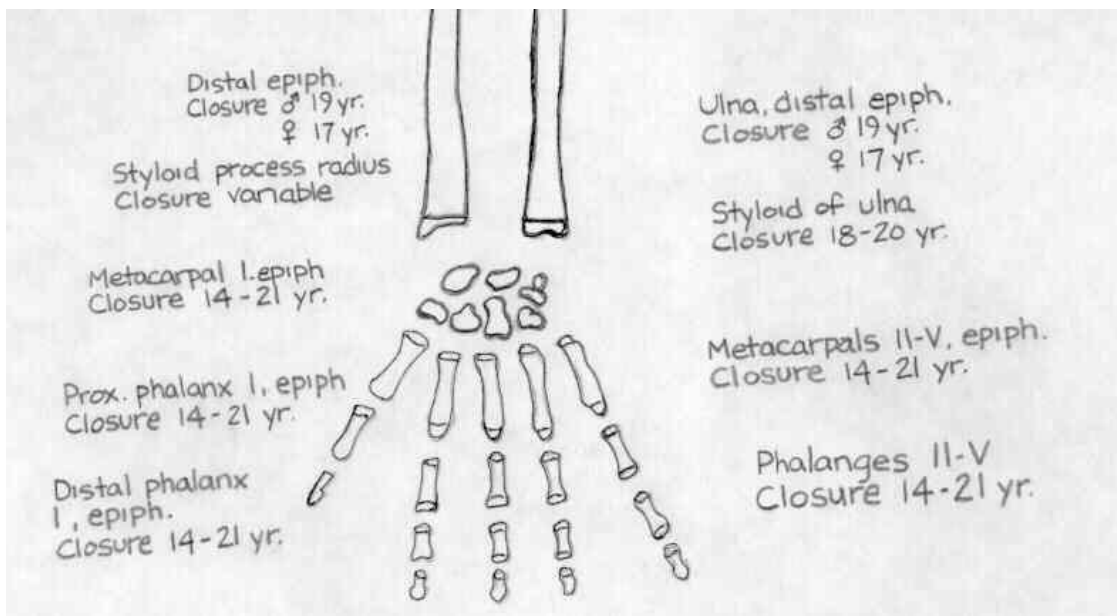 Distal epiph.
Closure ♂ 19 yr.
♀ 17 yr.
Styloid process radius
Closure variable
Metacarpal I.epiph
Closure 14-21 yr.
Prox. phalanx I, epiph
Closure 14-21 yr.
Distal phalanx
I, epiph.
Closure 14-21 yr.
Ulna, distal epiph.
Closure ♂ 19 yr.
♀ 17 yr.
Styloid of ulna
Closure 18-20 yr.
Metacarpals II-V, epiph.
Closure 14-21 yr.
Phalanges II-V
Closure 14-21 yr.